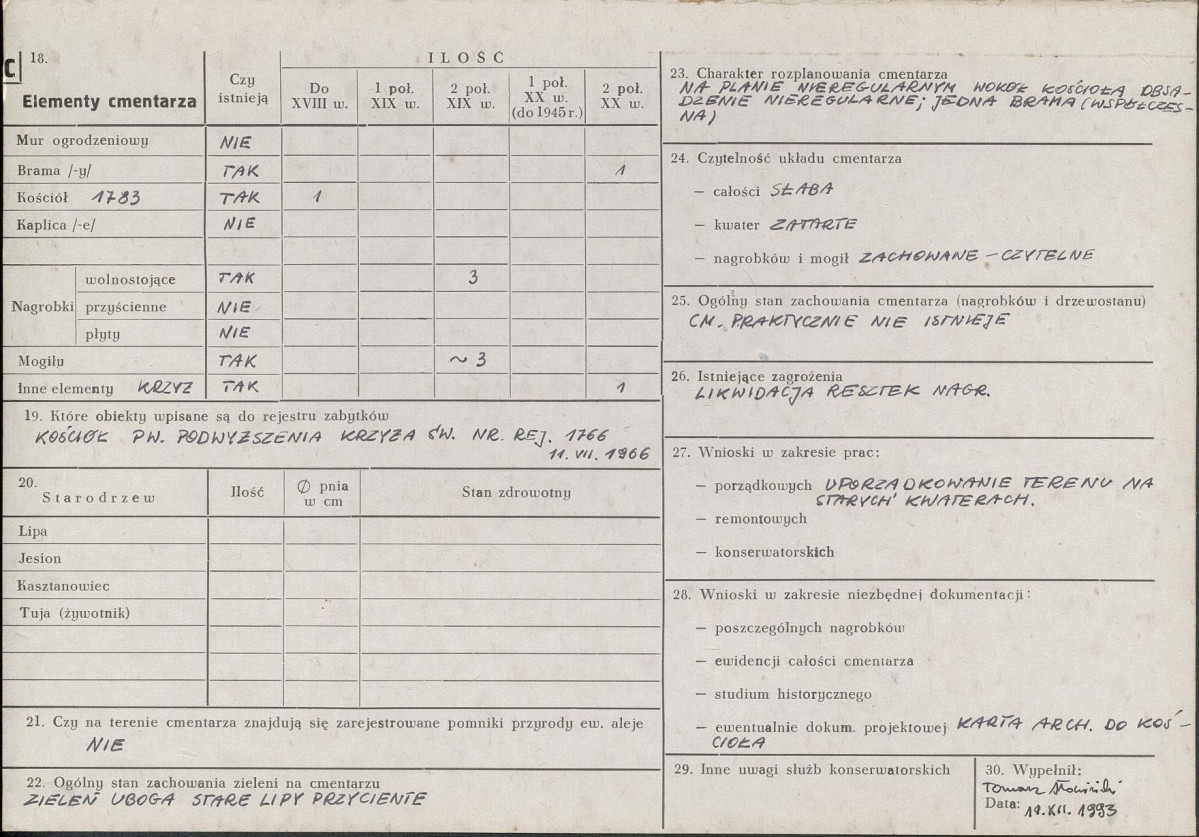 C
18.
Elementy cmentarza
Czy istnieją
ILOŚĆ
Do XVIII w.
1 poł. XIX w.
2 poł. XIX w.
1 poł. XX w. (do 1945 r.)
2 poł. XX w.
Mur ogrodzeniowy NIE
Brama /-y/ TAK 1
Kościół 1783 TAK 1
Kaplica /-e/ NIE
Nagrobki
wolnostojące TAK 3
przyścienne NIE
płyty NIE
Mogiły TAK ~ 3
Inne elementy KRZYZ TAK 1
19. Które obiekty wpisane są do rejestru zabytków
KOŚCIÓŁ PW. PODWYZSZENIA KRZYZA ŚW. NR. REJ. 1766
11. VII. 1966
20.
Starodrzew
Ilość
Ø pnia w cm
Stan zdrowotny
Lipa
Jesion
Kasztanowiec
Tuja (żywotnik)
21. Czy na terenie cmentarza znajdują się zarejestrowane pomniki przyrody ew. aleje
NIE
22. Ogólny stan zachowania zieleni na cmentarzu
ZIELEŃ UBOGA STARE LIPY PRZYCIENTE
23. Charakter rozplanowania cmentarza
NA PLANIE NIEREGULARNYM WOKÓŁ KOŚCIOŁA OBSA-
DZENIE NIEREGULARNE; JEDNA BRAMA (WSPÓŁCZES-
NA)
24. Czytelność układu cmentarza
— całości SŁABA
— kwater ZATARTE
— nagrobków i mogił ZACHOWANE – CZYTELNE
25. Ogólny stan zachowania cmentarza (nagrobków i drzewostanu)
CM. PRAKTYCZNIE NIE ISTNIEJE
26. Istniejące zagrożenia
LIKWIDACJA RESZTEK NAGR.
27. Wnioski w zakresie prac:
— porządkowych UPORZADKOWANIE TERENU NA
STARYCH KWATERACH.
— remontowych
— konserwatorskich
28. Wnioski w zakresie niezbędnej dokumentacji:
— poszczególnych nagrobków
— ewidencji całości cmentarza
— studium historycznego
— ewentualnie dokum. projektowej KARTA ARCH. DO KOŚ-
CIOŁA
29. Inne uwagi służb konserwatorskich
30. Wypełnił:
Tomasz
Data: 19.XII.1993